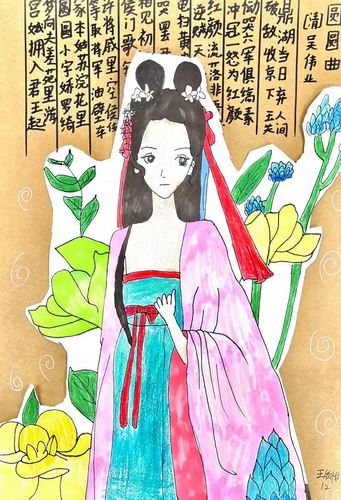 圆圆曲
[清]吴伟业
鼎湖当日弃人间
破敌收京下玉关
恸哭六军俱缟素
冲冠一怒为红颜
红颜流落非吾
逆贼天
电扫黄
哭罢
相见初
侯门歌
许将戚里空侯伎
等取将军油壁车
家本姑苏浣花里
圆圆小字娇罗绮
梦向夫差苑里游
宫娥拥入君王起
12